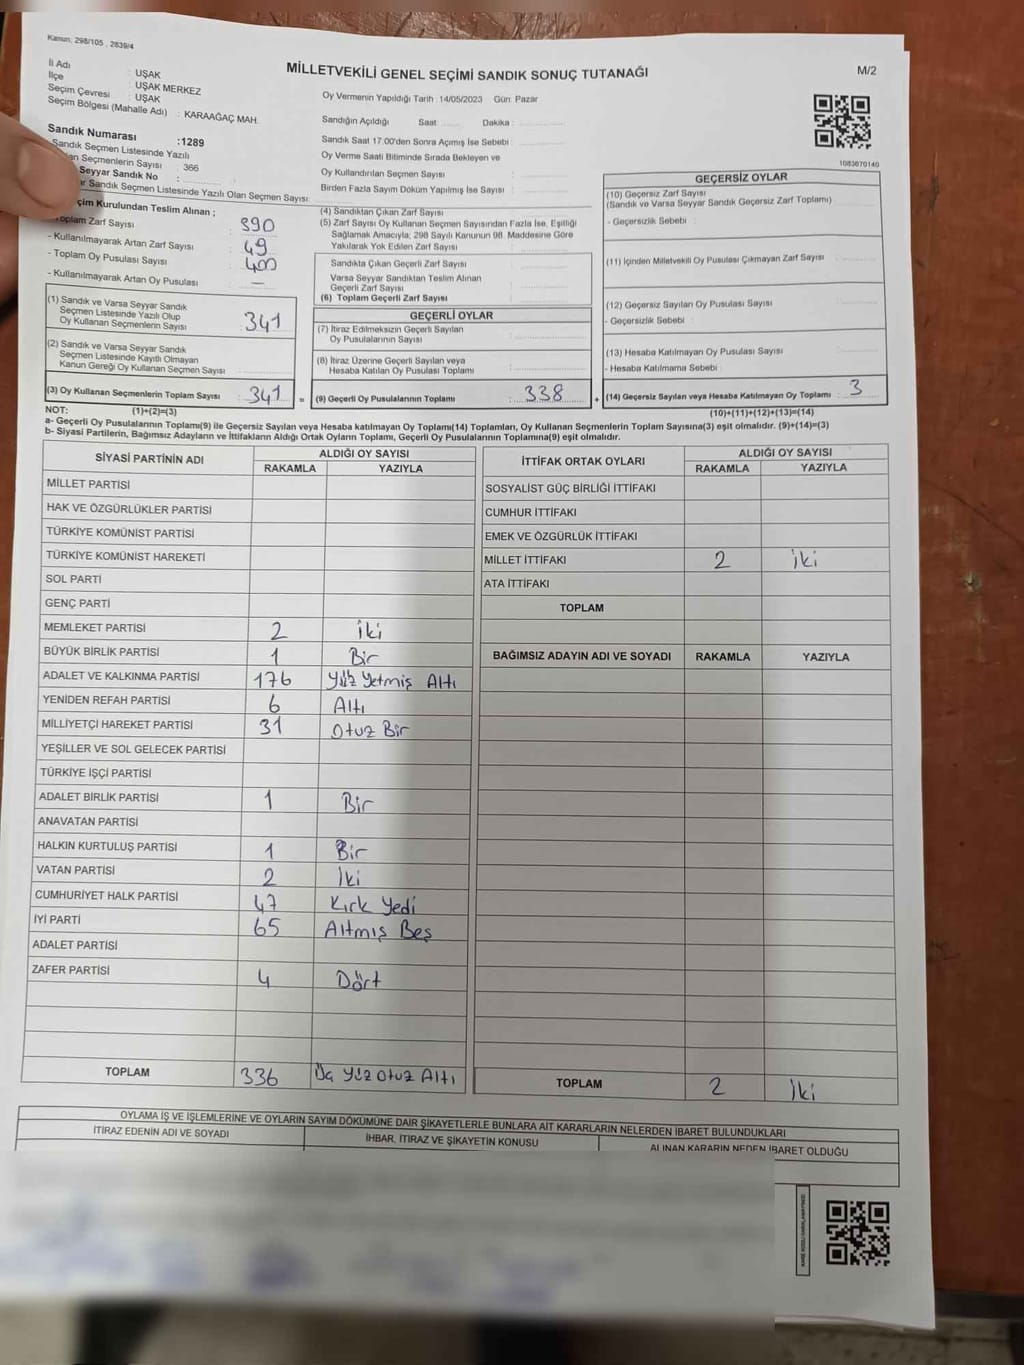 Kanun: 298/105 , 2839/4
MİLLETVEKİLİ GENEL SEÇİMİ SANDIK SONUÇ TUTANAĞI
M/2
İl Adı : UŞAK
İlçe : UŞAK MERKEZ
Seçim Çevresi : UŞAK
Seçim Bölgesi (Mahalle Adı) : KARAAĞAÇ MAH.
Sandık Numarası :1289
Sandık Seçmen Listesinde Yazılı
an Seçmenlerin Sayısı : 366
Seyyar Sandık No :
ar Sandık Seçmen Listesinde Yazılı Olan Seçmen Sayısı:
çim Kurulundan Teslim Alınan ;
Toplam Zarf Sayısı : 390
- Kullanılmayarak Artan Zarf Sayısı : 49
- Toplam Oy Pusulası Sayısı : 400
- Kullanılmayarak Artan Oy Pusulası : —
(1) Sandık ve Varsa Seyyar Sandık
Seçmen Listesinde Yazılı Olup
Oy Kullanan Seçmenlerin Sayısı : 341
(2) Sandık ve Varsa Seyyar Sandık
Seçmen Listesinde Kayıtlı Olmayan
Kanun Gereği Oy Kullanan Seçmen Sayısı :
(3) Oy Kullanan Seçmenlerin Toplam Sayısı : 341 =
Oy Vermenin Yapıldığı Tarih :14/05/2023 Gün: Pazar
Sandığın Açıldığı Saat: Dakika :
Sandık Saat 17:00'den Sonra Açımış İse Sebebi :
Oy Verme Saati Bitiminde Sırada Bekleyen ve
Oy Kullandırılan Seçmen Sayısı :
Birden Fazla Sayım Döküm Yapılmış İse Sayısı :
(4) Sandıktan Çıkan Zarf Sayısı :
(5) Zarf Sayısı Oy Kullanan Seçmen Sayısından Fazla İse, Eşitliği
Sağlamak Amacıyla; 298 Sayılı Kanunun 98. Maddesine Göre
Yakılarak Yok Edilen Zarf Sayısı :
Sandıkta Çıkan Geçerli Zarf Sayısı :
Varsa Seyyar Sandıktan Teslim Alınan
Geçerli Zarf Sayısı :
(6) Toplam Geçerli Zarf Sayısı :
GEÇERLİ OYLAR
(7) İtiraz Edilmeksizin Geçerli Sayılan
Oy Pusulalarının Sayısı :
(8) İtiraz Üzerine Geçerli Sayılan veya
Hesaba Katılan Oy Pusulası Toplamı :
(9) Geçerli Oy Pusulalarının Toplamı : 338 +
1083670140
GEÇERSİZ OYLAR
(10) Geçersiz Zarf Sayısı
(Sandık ve Varsa Seyyar Sandık Geçersiz Zarf Toplamı) :
- Geçersizlik Sebebi :
(11) İçinden Milletvekili Oy Pusulası Çıkmayan Zarf Sayısı :
(12) Geçersiz Sayılan Oy Pusulası Sayısı :
- Geçersizlik Sebebi :
(13) Hesaba Katılmayan Oy Pusulası Sayısı :
- Hesaba Katılmama Sebebi :
(14) Geçersiz Sayılan veya Hesaba Katılmayan Oy Toplamı : 3
NOT: (1)+(2)=(3) (10)+(11)+(12)+(13)=(14)
a- Geçerli Oy Pusulalarının Toplamı(9) ile Geçersiz Sayılan veya Hesaba Katılmayan Oy Toplamı(14) Toplamları, Oy Kullanan Seçmenlerin Toplam Sayısına(3) eşit olmalıdır. (9)+(14)=(3)
b- Siyasi Partilerin, Bağımsız Adayların ve İttifakların Aldığı Ortak Oyların Toplamı, Geçerli Oy Pusulalarının Toplamına(9) eşit olmalıdır.
SİYASİ PARTİNİN ADI ALDIĞI OY SAYISI
RAKAMLA YAZIYLA
MİLLET PARTİSİ
HAK VE ÖZGÜRLÜKLER PARTİSİ
TÜRKİYE KOMÜNİST PARTİSİ
TÜRKİYE KOMÜNİST HAREKETİ
SOL PARTİ
GENÇ PARTİ
MEMLEKET PARTİSİ 2 İki
BÜYÜK BİRLİK PARTİSİ 1 Bir
ADALET VE KALKINMA PARTİSİ 176 Yüz Yetmiş Altı
YENİDEN REFAH PARTİSİ 6 Altı
MİLLİYETÇİ HAREKET PARTİSİ 31 Otuz Bir
YEŞİLLER VE SOL GELECEK PARTİSİ
TÜRKİYE İŞÇİ PARTİSİ
ADALET BİRLİK PARTİSİ 1 Bir
ANAVATAN PARTİSİ
HALKIN KURTULUŞ PARTİSİ 1 Bir
VATAN PARTİSİ 2 İki
CUMHURİYET HALK PARTİSİ 47 Kırk Yedi
İYİ PARTİ 65 Altmış Beş
ADALET PARTİSİ
ZAFER PARTİSİ 4 Dört
TOPLAM 336 Üç Yüz Otuz Altı
İTTİFAK ORTAK OYLARI ALDIĞI OY SAYISI
RAKAMLA YAZIYLA
SOSYALİST GÜÇ BİRLİĞİ İTTİFAKI
CUMHUR İTTİFAKI
EMEK VE ÖZGÜRLÜK İTTİFAKI
MİLLET İTTİFAKI 2 İki
ATA İTTİFAKI
TOPLAM
BAĞIMSIZ ADAYIN ADI VE SOYADI RAKAMLA YAZIYLA
TOPLAM 2 İki
OYLAMA İŞ VE İŞLEMLERİNE VE OYLARIN SAYIM DÖKÜMÜNE DAİR ŞİKAYETLERLE BUNLARA AİT KARARLARIN NELERDEN İBARET BULUNDUKLARI
İTİRAZ EDENİN ADI VE SOYADI İHBAR, İTİRAZ VE ŞİKAYETİN KONUSU ALINAN KARARIN NEDEN İBARET OLDUĞU